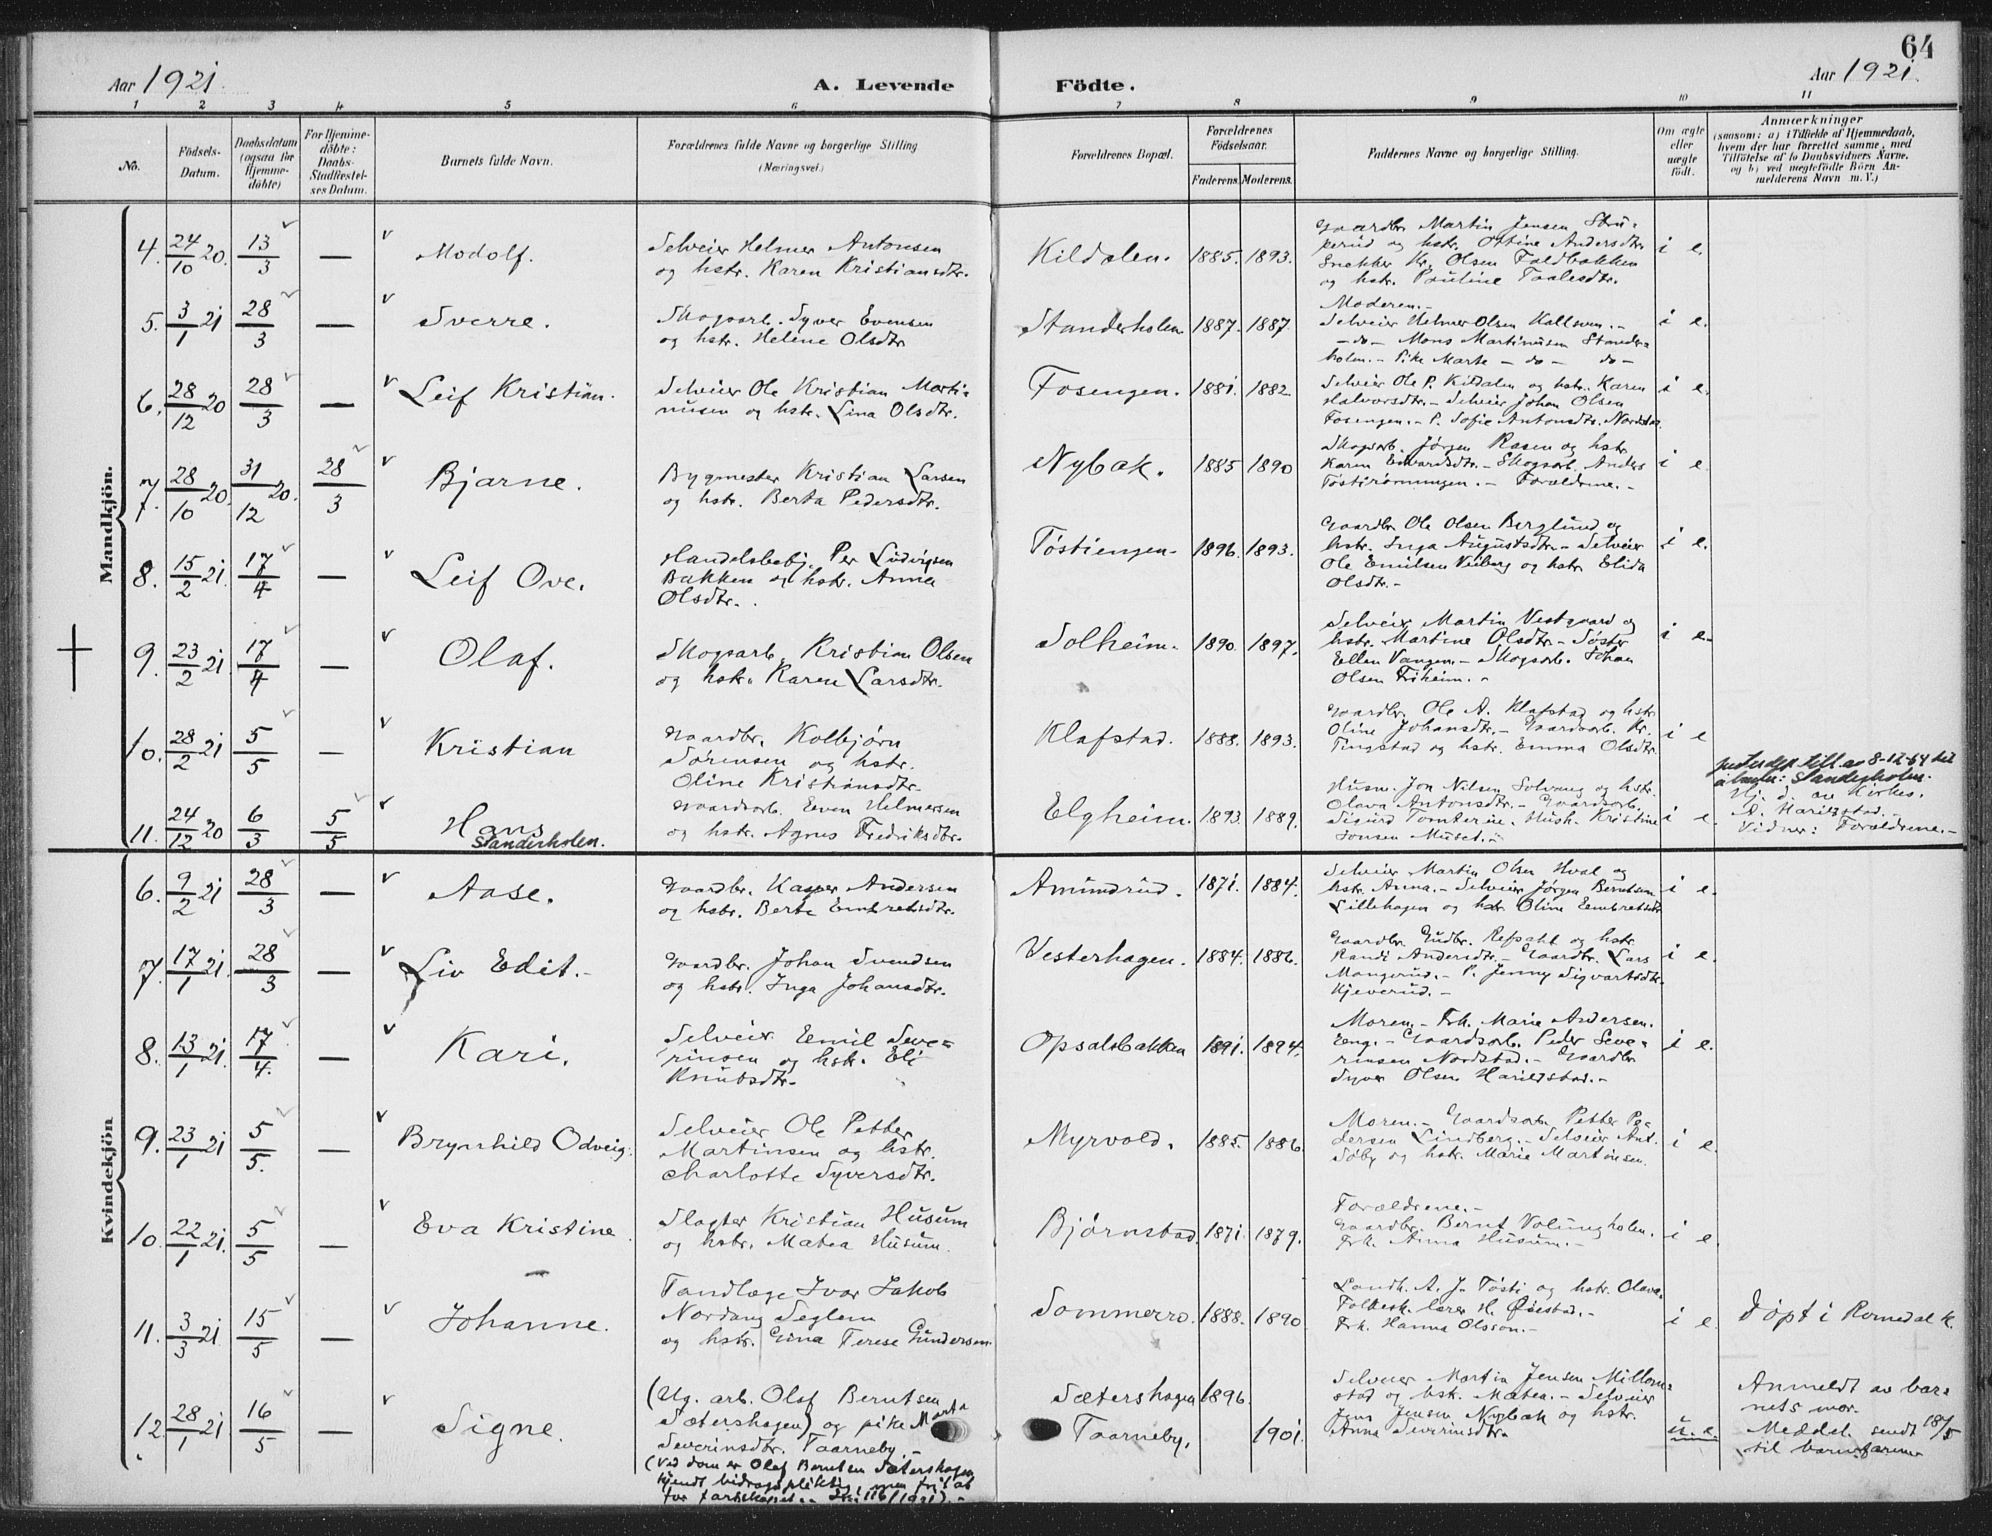 64
Aar 1921.
A. Levende
Födte.
Aar 1921.
1 2 3 4 5 6 7 8 9 10 11
No.
Födsels-
Datum.
Daabsdatum
(ogsaa for
Hjemme-
döbte)
For Hjemme-
döbte:
Daabs-
Stadfæstel-
ses Datum.
Barnets fulde Navn.
Forældrenes fulde Navne og borgerlige Stilling
(Næringsvei.)
Forældrenes Bopæl.
Forældrenes
Födselsaar.
Faderens. Moderens.
Faddernes Navne og borgerlige Stilling.
Om ægte
eller
uægte
födt.
Anmærkninger
(saasom: a) i Tilfælde af Hjemmedaab,
hvem der har forrettet samme, med
Tilföielse af to Daabsvidners Navne,
og b) ved uægtefödte Börn An-
melderens Navn m. V.)
Mandkjön.
4. 24/10 20. 13/3 — Modolf.
Selveier Helmer Antonsen
og hstr. Karen Kristiansdtr.
Kildalen. 1885. 1893.
Gaardbr. Martin Jensen Stru-
perud og hstr. Ottine Andersdtr.
Snekker Kr. Olsen Faldbakken
og hstr. Pauline Paalsdtr.
i e.
5. 3/1 21 28/3 — Sverre.
Skogsarb. Syver Evensen
og hstr. Helene Olsdtr
Standerholen. 1887. 1887.
Moderen.-
Selveier Helmer Olsen Kallsven.-
-do- Mons Martinusen Stander-
holen.- Pike Marte -do- do-
i e.
6. 28/12 20 28/3 — Leif Kristian.
Selveier Ole Kristian Marti-
nusen og hstr. Lina Olsdtr.
Fosengen. 1881. 1882
Selveier Ole P. Kildalen og hstr. Karen
Halvorsdtr.- Selveier Johan Olsen
Fosengen.- P. Sofie Antonsdtr. Nordstad
i e.
7. 28/10 20. 31/12 20. 28/3 Bjarne.
Bygmester Kristian Larsen
og hstr. Berta Pedersdtr.
Nybak. 1885 1890
Skogsarb. Jørgen Rasen og hstr.
Karen Edvardsdtr.- Skogsarb. Anders
Tøstirømningen.- Forældrene.-
i e.
8. 15/2 21. 17/4 — Leif Ove.
Handelsbetj. Per Ludvigsen
Bakken og hstr. Anna
Olsdtr.
Tøstiengen. 1896. 1893.
Gaardbr. Ole Olsen Berglund og
hstr. Inga Augustsdtr.- Selveier
Ole Emilsen Viiberg og hstr. Elida
Olsdtr.-
i e.
9. 23/2 21. 17/4 — Olaf.
Skogsarb. Kristian Olsen
og hstr. Karen Larsdtr.
Solheim. 1890. 1897.
Selveier Martin Vestgaard og
hstr. Martine Olsdtr.- Søster
Ellen Vangen.- Skogsarb. Johan
Olsen Friheim.-
i e.
10. 28/2 21 5/5 — Kristian
Gaardbr. Kolbjørn
Sørensen og hstr.
Oline Kristiansdtr.
Klafstad. 1888. 1893.
Gaardbr. Ole A. Klafstad og hstr.
Oline Johansdtr.- Gaardarb. Kr.
Tingstad og hstr. Emma Olsdtr.
i e
11. 24/12 20 6/3 5/5 Hans
Standerholen.
Gaardsarb. Even Helmersen
og hstr. Agnes Fredriksdtr.
Elgheim. 1893. 1889.
Husm. Jon Nilsen Solvang og hstr.
Olava Antonsdtr.- Gaardsarb.
Sigurd Tomterene. Hush. Kristine
Jonsen Muset.-
i e.
till. av 8-12-64 til
Standerholen.
Hj. d. av Kirkes.
A. Harildstad.-
Vidner: Forældrene.-
Kvindekjön
6. 9/2 21 28/3 — Aase.
Gaardbr. Kasper Andersen
og hstr. Berte Embretsdtr.
Amundrud. 1871. 1884.
Selveier Martin Olsen Hval og
hstr. Anna.- Selveier Jørgen Berntsen
Lillehagen og hstr. Oline Embretsdtr.
i e.
7. 17/1 21. 28/3 — Liv Edit.-
Gaardbr. Johan Svendsen
og hstr. Inga Johansdtr.
Vesterhagen. 1884. 1886.
Gaardbr. Gudbr. Refsahl og hstr.
Randi Andersdtr.- Gaardbr. Lars
Mangerud.- P. Jenny Sigvartsdtr.
Kjeverud.-
i e.
8. 13/1 21. 17/4. — Kari.
Selveier Emil Seve-
rinsen og hstr. Eli
Knutsdtr.
Opsalsbakken 1891. 1894.
Moren.- Frk. Marie Andersen.
Eng.- Gaardsarb. Peder Seve-
rinsen Nordstad.- Gaardbr
Syver Olsen Harildstad.-
i e.
9. 23/1 21. 5/5. — Brynhild Odveig.
Selveier Ole Petter
Martinsen og hstr.
Charlotte Syversdtr.
Myrvold. 1885. 1886.
Moren.- Gaardsarb. Petter Pe-
dersen Lindberg.- Selveier Ant.
Søby og hstr. Marie Martinsen.
i e.
10. 22/1 21. 5/5 — Eva Kristine
Slagter Kristian Husum
og hstr. Matea Husum.
Bjørnstad. 1871. 1879.
Forældrene.-
Gaardbr. Bernt Volungholen.
Frk. Anna Husum.-
i e.
11. 3/3 21 15/5 — Johanne.
Tandlæge Ivar Jakob
Nordang Seglem
og hstr. Gina Terese Gundersen.
Sommerro. 1888. 1890
Landh. A. J. Tøsti og hstr. Olava.
Folkesk. lærer H. Øiestad.-
Frk. Hanna Olsson.-
i e.
Døpt i Romedal k.
12. 28/1 21 16/5 — Signe.
(Ug. arb. Olaf Berntsen
Sætershagen) og pike Marta
Severinsdtr. Taarneby.-
(Ved dom er Olaf Berntsen Sætershagen
kjendt bidragspliktig, men fri at
for farskapet.- 116/1921).-
Sætershagen 1896.
Taarneby. 1901.
Selveier Martin Jensen Millom-
stad og hstr. Matea.- Selveier
Jens Jensen Nybak og hstr.
Anna Severinsdtr.
u. e.
Anmeldt av bar-
nets mor.
Meddel. sendt 18/5
til barnefaren